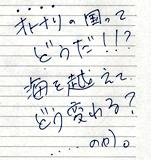 オトナリの国って
どうだ!!?
海を越えて
どう変わる?
……の巻。